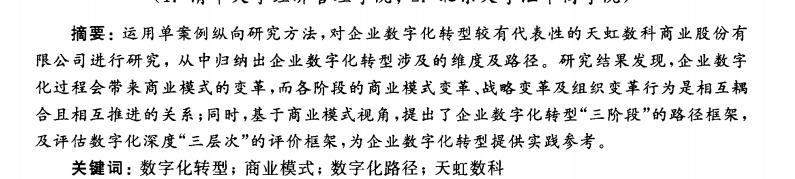 摘要：运用单案例纵向研究方法，对企业数字化转型较有代表性的天虹数科商业股份有
限公司进行研究，从中归纳出企业数字化转型涉及的维度及路径。研究结果发现，企业数字
化过程会带来商业模式的变革，而各阶段的商业模式变革、战略变革及组织变革行为是相互耦
合且相互推进的关系；同时，基于商业模式视角，提出了企业数字化转型“三阶段”的路径框架，
及评估数字化深度“三层次”的评价框架，为企业数字化转型提供实践参考。
关键词：数字化转型；商业模式；数字化路径；天虹数科